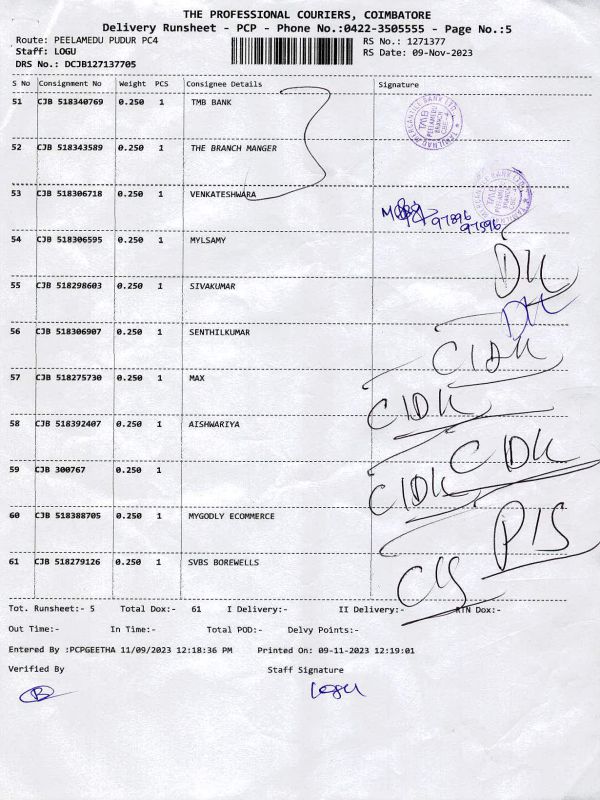 THE PROFESSIONAL COURIERS, COIMBATORE
Delivery Runsheet - PCP - Phone No.:0422-3505555 - Page No.:5
Route: PEELAMEDU PUDUR PC4 RS No.: 1271377
Staff: LOGU RS Date: 09-Nov-2023
DRS No.: DCJB127137705
S No Consignment No Weight PCS Consignee Details Signature
51 CJB 518340769 0.250 1 TMB BANK
52 CJB 518343589 0.250 1 THE BRANCH MANGER
53 CJB 518306718 0.250 1 VENKATESHWARA 97896
54 CJB 518306595 0.250 1 MYLSAMY
55 CJB 518298603 0.250 1 SIVAKUMAR
56 CJB 518306907 0.250 1 SENTHILKUMAR
57 CJB 518275730 0.250 1 MAX
58 CJB 518392407 0.250 1 AISHWARIYA
59 CJB 300767 0.250 1
60 CJB 518388705 0.250 1 MYGODLY ECOMMERCE
61 CJB 518279126 0.250 1 SVBS BOREWELLS
Tot. Runsheet:- 5 Total Dox:- 61 I Delivery:- II Delivery:- RTN Dox:-
Out Time:- In Time:- Total POD:- Delvy Points:-
Entered By :PCPGEETHA 11/09/2023 12:18:36 PM Printed On: 09-11-2023 12:19:01
Verified By Staff Signature
Logu